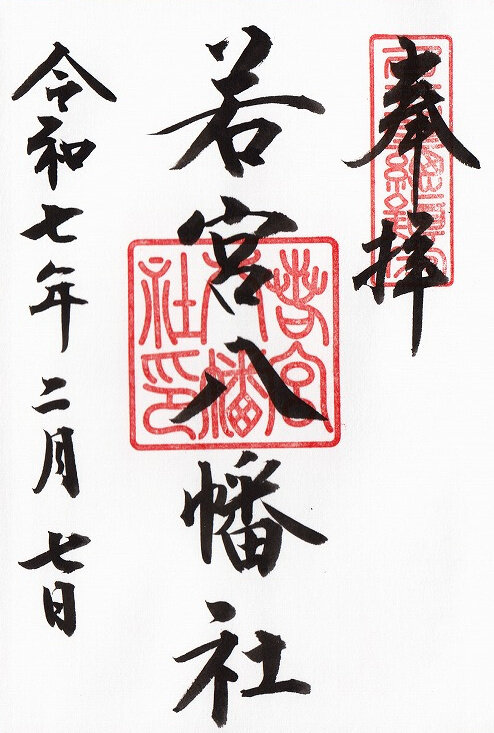 奉拝
若宮八幡社
若宮八幡社印
令和七年二月七日